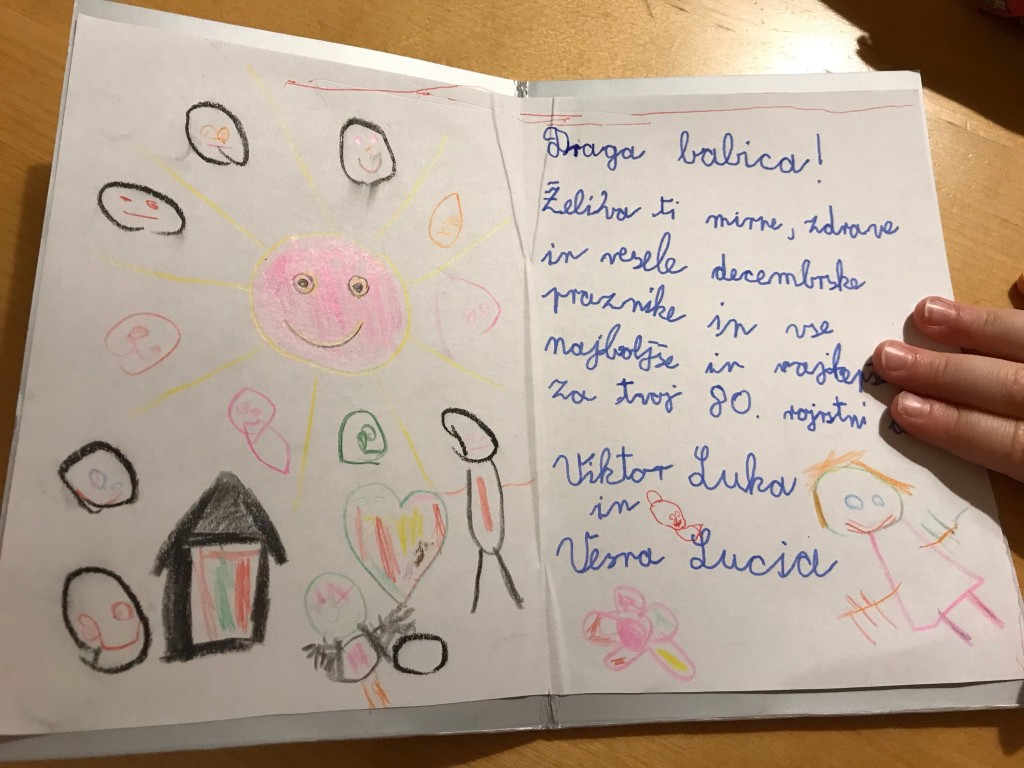 Draga babica!
Želiva ti mirne, zdrave
in vesele decembrske
praznike in vse
najboljše in
za tvoj 80. rojstni
Viktor Luka
in
Vesna Lucia